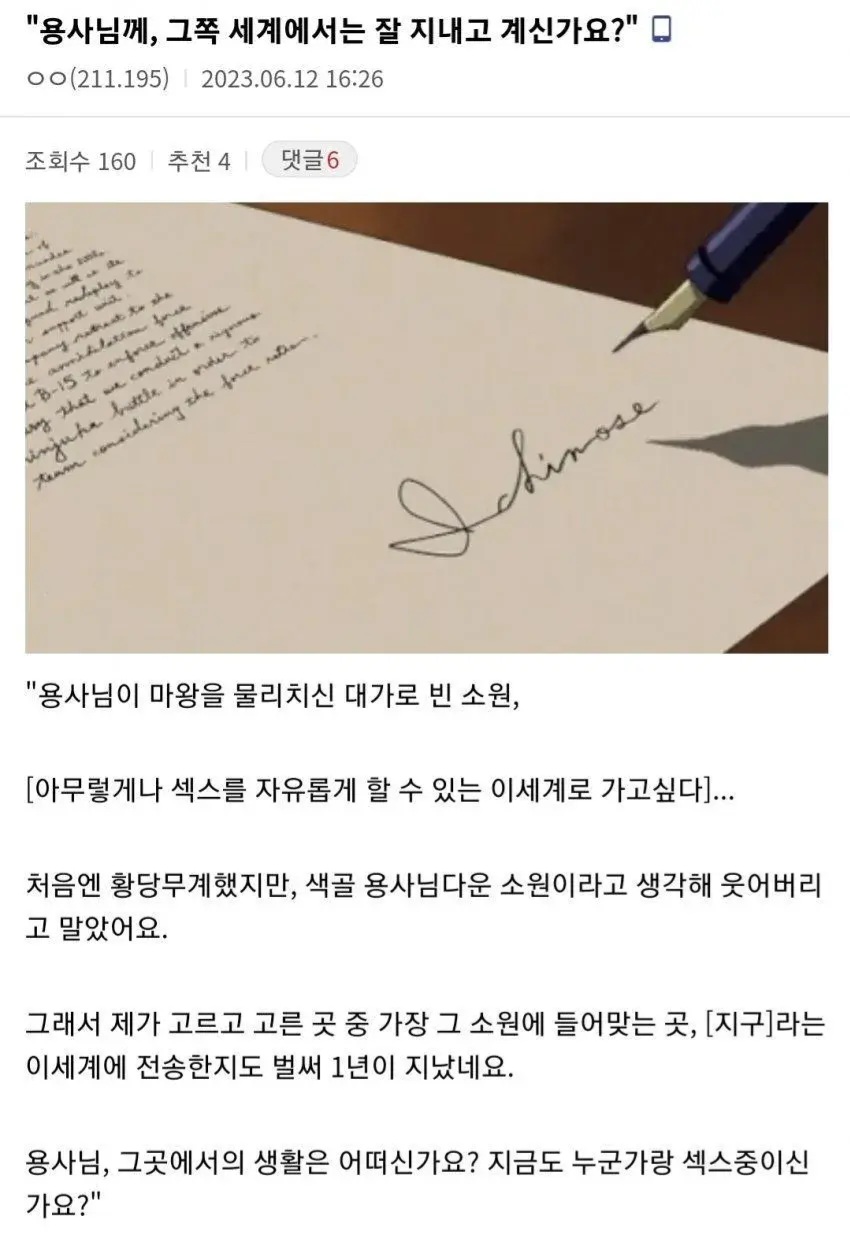 "용사님께, 그쪽 세계에서는 잘 지내고 계신가요?"
ㅇㅇ(211.195) 2023.06.12 16:26
조회수 160 추천 4 댓글6
in the battle
support with
retreat to the
annihilation force
B-15 to enforce offensive
that we conduct a rigorous
battle in order to
team considering the force ratio.
Ichinose
"용사님이 마왕을 물리치신 대가로 빈 소원,
[아무렇게나 섹스를 자유롭게 할 수 있는 이세계로 가고싶다]...
처음엔 황당무계했지만, 색골 용사님다운 소원이라고 생각해 웃어버리
고 말았어요.
그래서 제가 고르고 고른 곳 중 가장 그 소원에 들어맞는 곳, [지구]라는
이세계에 전송한지도 벌써 1년이 지났네요.
용사님, 그곳에서의 생활은 어떠신가요? 지금도 누군가랑 섹스중이신
가요?"